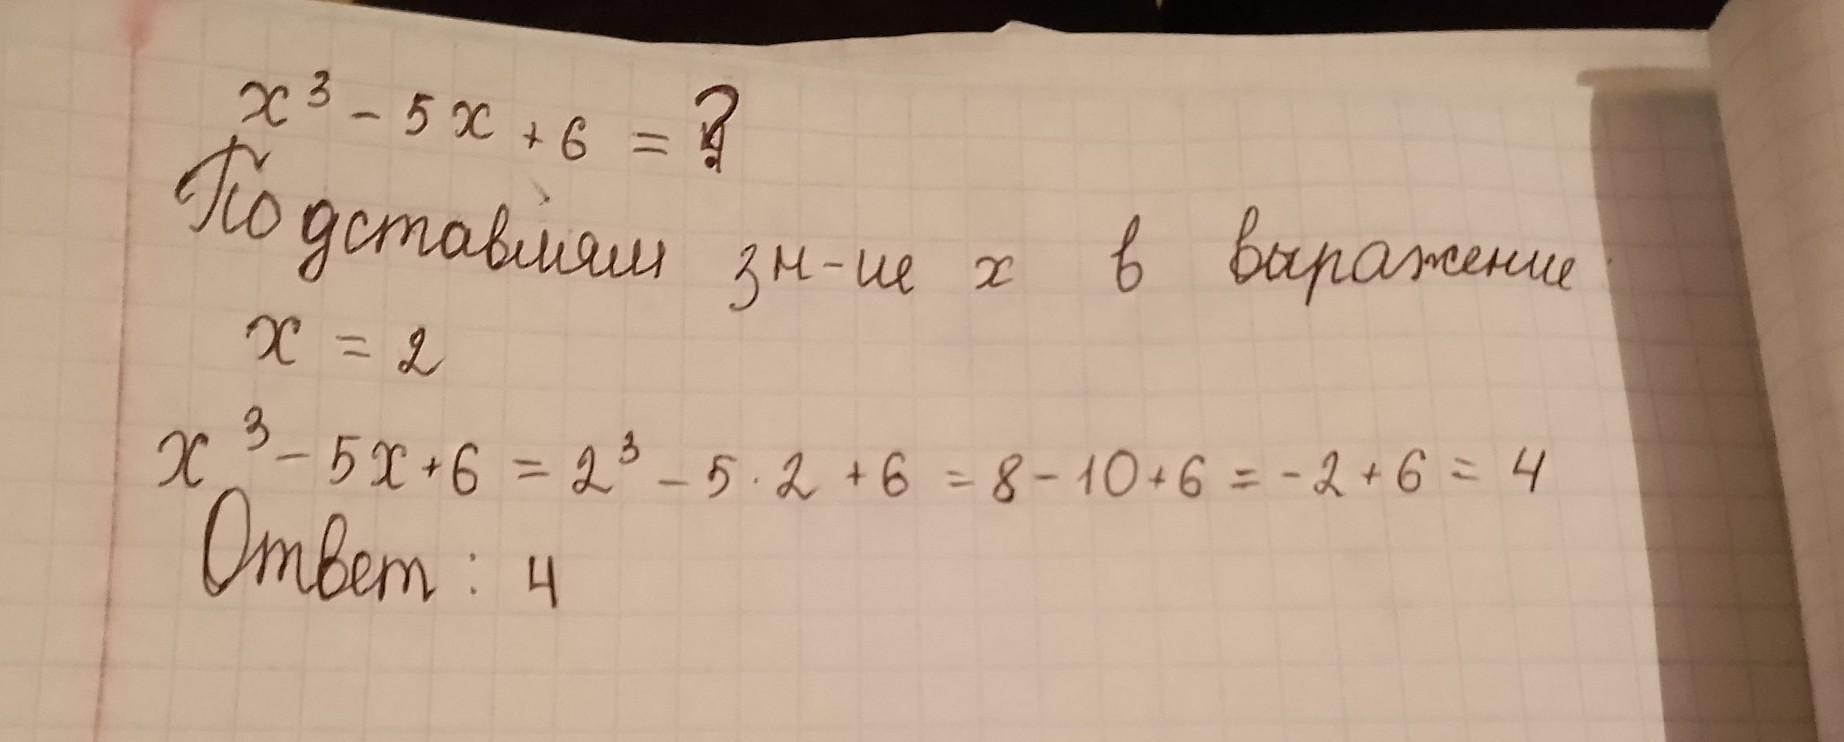 x³ - 5x + 6 = ?
Подставляем зн-ие x в выражение
x = 2
x³ - 5x + 6 = 2³ - 5 · 2 + 6 = 8 - 10 + 6 = -2 + 6 = 4
Ответ : 4